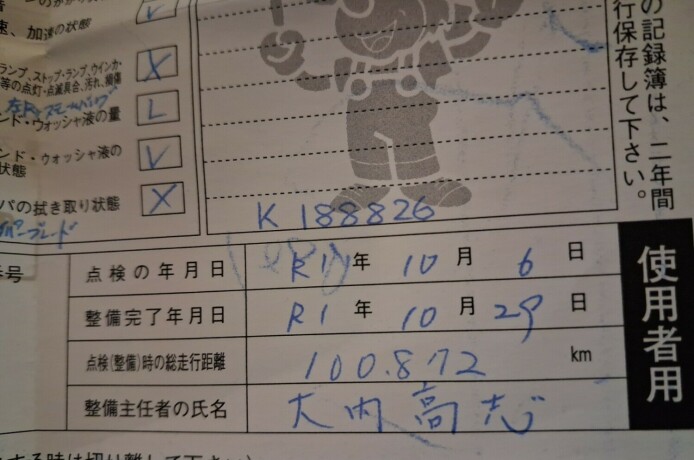 速、加速の状態 レ
ランプ、ストップ・ランプ、ウインカ・ X
等の点灯・点滅具合、汚れ、損傷
左Rrスモールバルブ
ンド・ウォッシャ液の量 L
ンド・ウォッシャ液の レ
状態
パの拭き取り状態 X
パーブレード
の記録簿は、二年間
行保存して下さい。
K 188826
番号
点検の年月日 R1 年 10 月 6 日
整備完了年月日 R1 年 10 月 29 日
点検(整備)時の総走行距離 100.872 km
整備主任者の氏名 大内高志
使用者用
する時は切り離して下さい